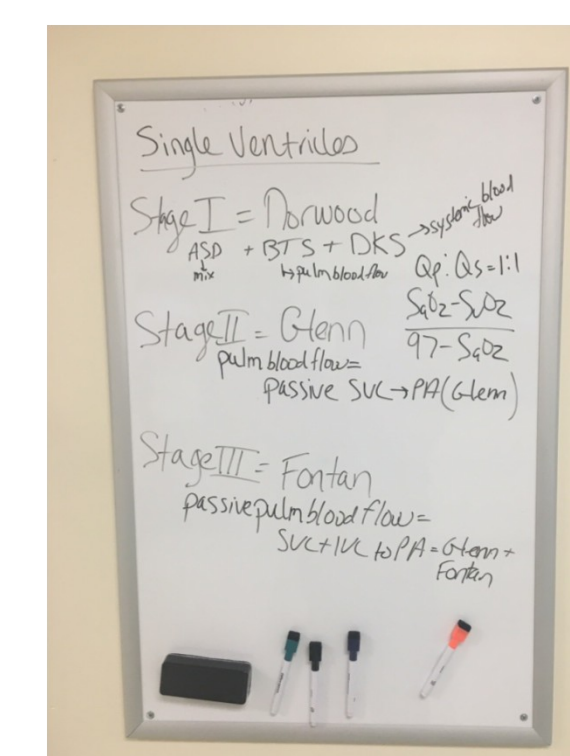 Single Ventricles
Stage I = Norwood
ASD + BTS + DKS → systemic blood flow
↓ mix
↳ pulm blood flow
Qp: Qs = 1:1
SaO2 - SvO2
97 - SaO2
Stage II = Glenn
pulm blood flow =
passive SVC → PA (Glenn)
Stage III = Fontan
passive pulm blood flow =
SVC + IVC to PA = Glenn +
Fontan